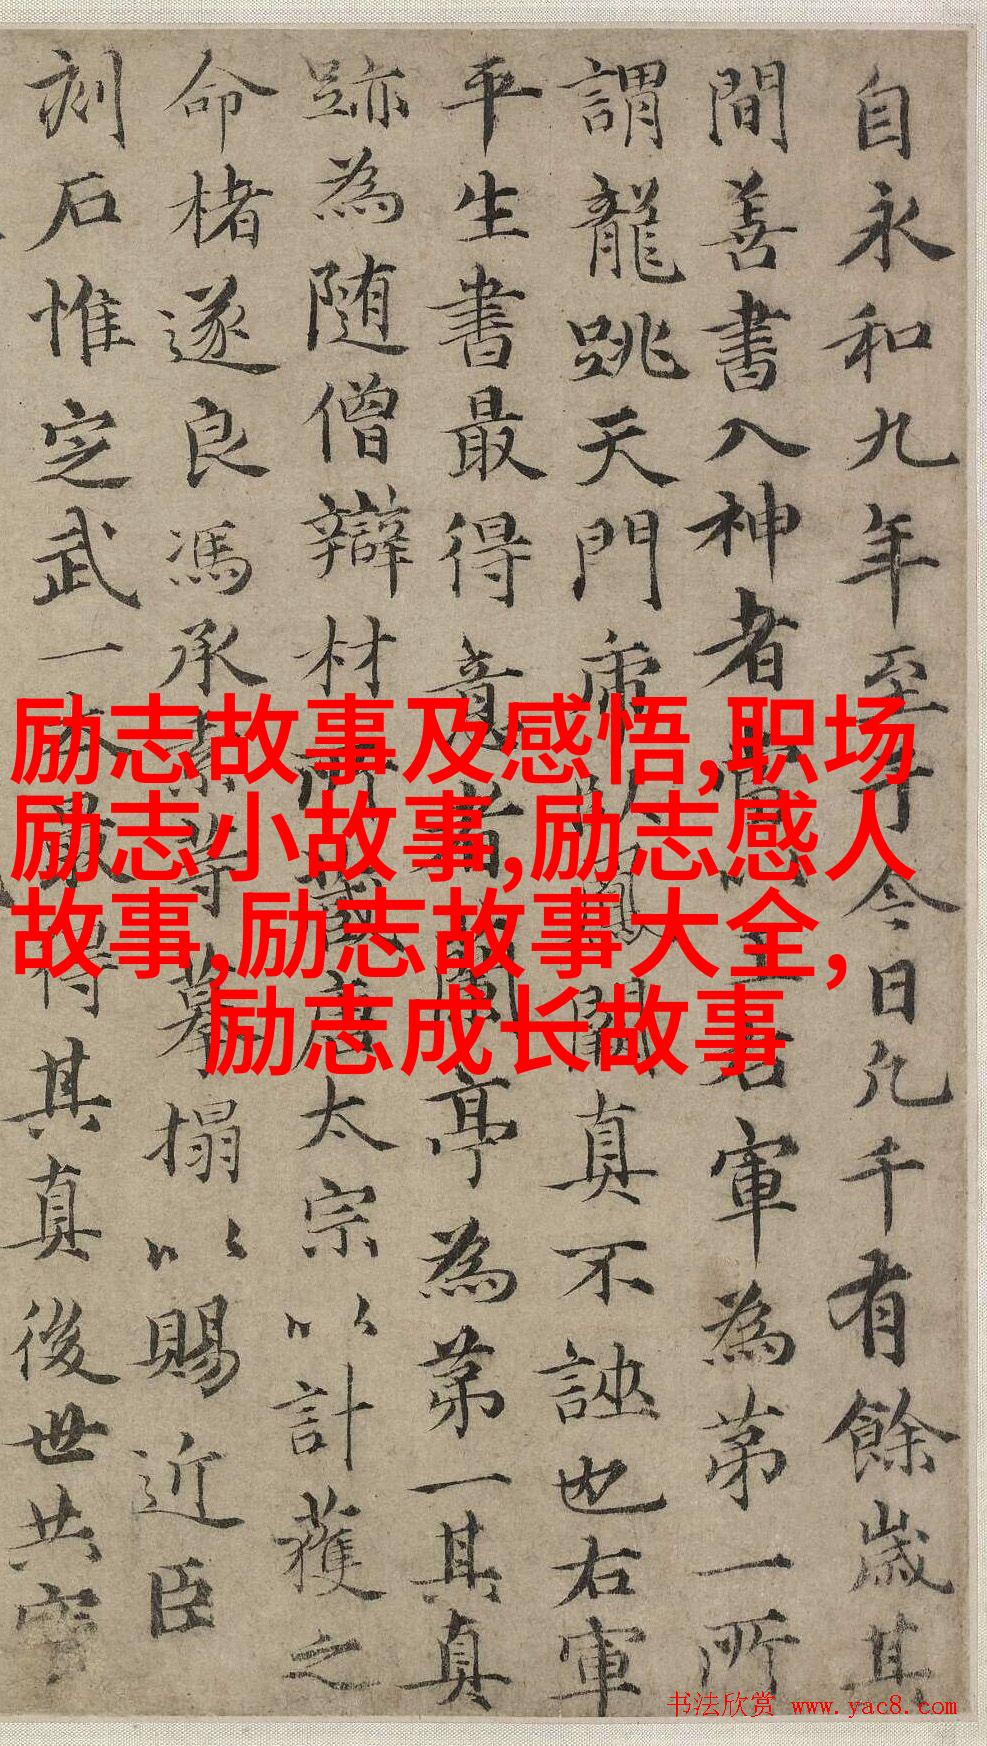 自永和九年至于今日凡千有餘歲其
間善書入神者當以王右軍為第一所
謂龍跳天門虎臥鳳閣真不誣也右軍
平生書最得意者蘭亭為第一其真
跡為随僧辯材所藏唐太宗以計獲之
命楮遂良馮承素等摹搨以賜近臣
刻石惟定武一本最得其真後世共寶
励志故事及感悟,职场
励志小故事,励志感人
故事,励志故事大全,
励志成长故事
书法欣赏 www.yac8.com